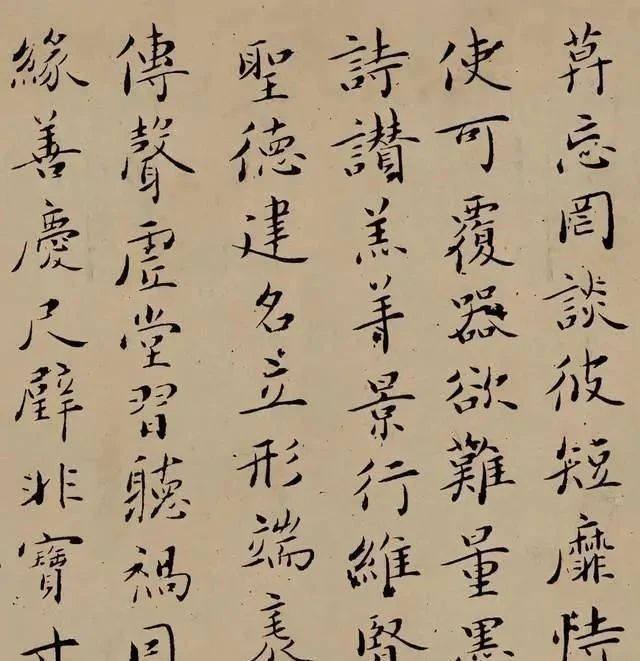 莫忘罔談彼短靡恃
使可覆器欲難量墨
詩讃羔羊景行維賢
聖德建名立形端表
傳聲虛堂習聽禍因
緣善慶尺璧非寶寸